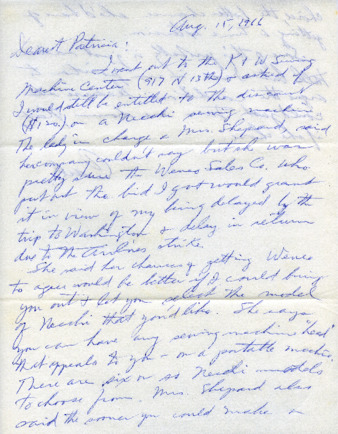 Aug. 15, 1966
Dearest Patricia:
I went out to the K & W Sewing
Machine Center (917 N 15th) & asked if
I would still be entitled to the discount
($120) on a Necchi sewing machine.
The lady in charge a Mrs. Shepard, said
her company couldn't say but she was
pretty sure the Wenco Sales Co. who
put out the bid I got would grant
it in view of my being delayed by the
trip to Washington & delay in return
due to the Airlines strike.
She said her chances of getting Wenco
to agree would be better if I could bring
you out & let you select the model
of Necchi that you'd like. She says
you can have any sewing machine "head"
that appeals to you - on a portable machine.
There are six or so Necchi models
to choose from. Mrs. Shepard also
said the sooner you could make a